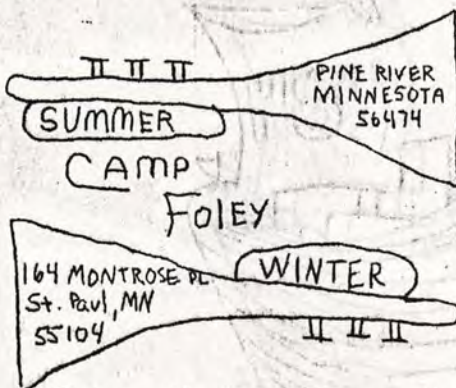 PINE RIVER
MINNESOTA
56474
SUMMER
CAMP
FOlEY
WINTER
164 MONTROSE PL
St. Paul, MN
55104